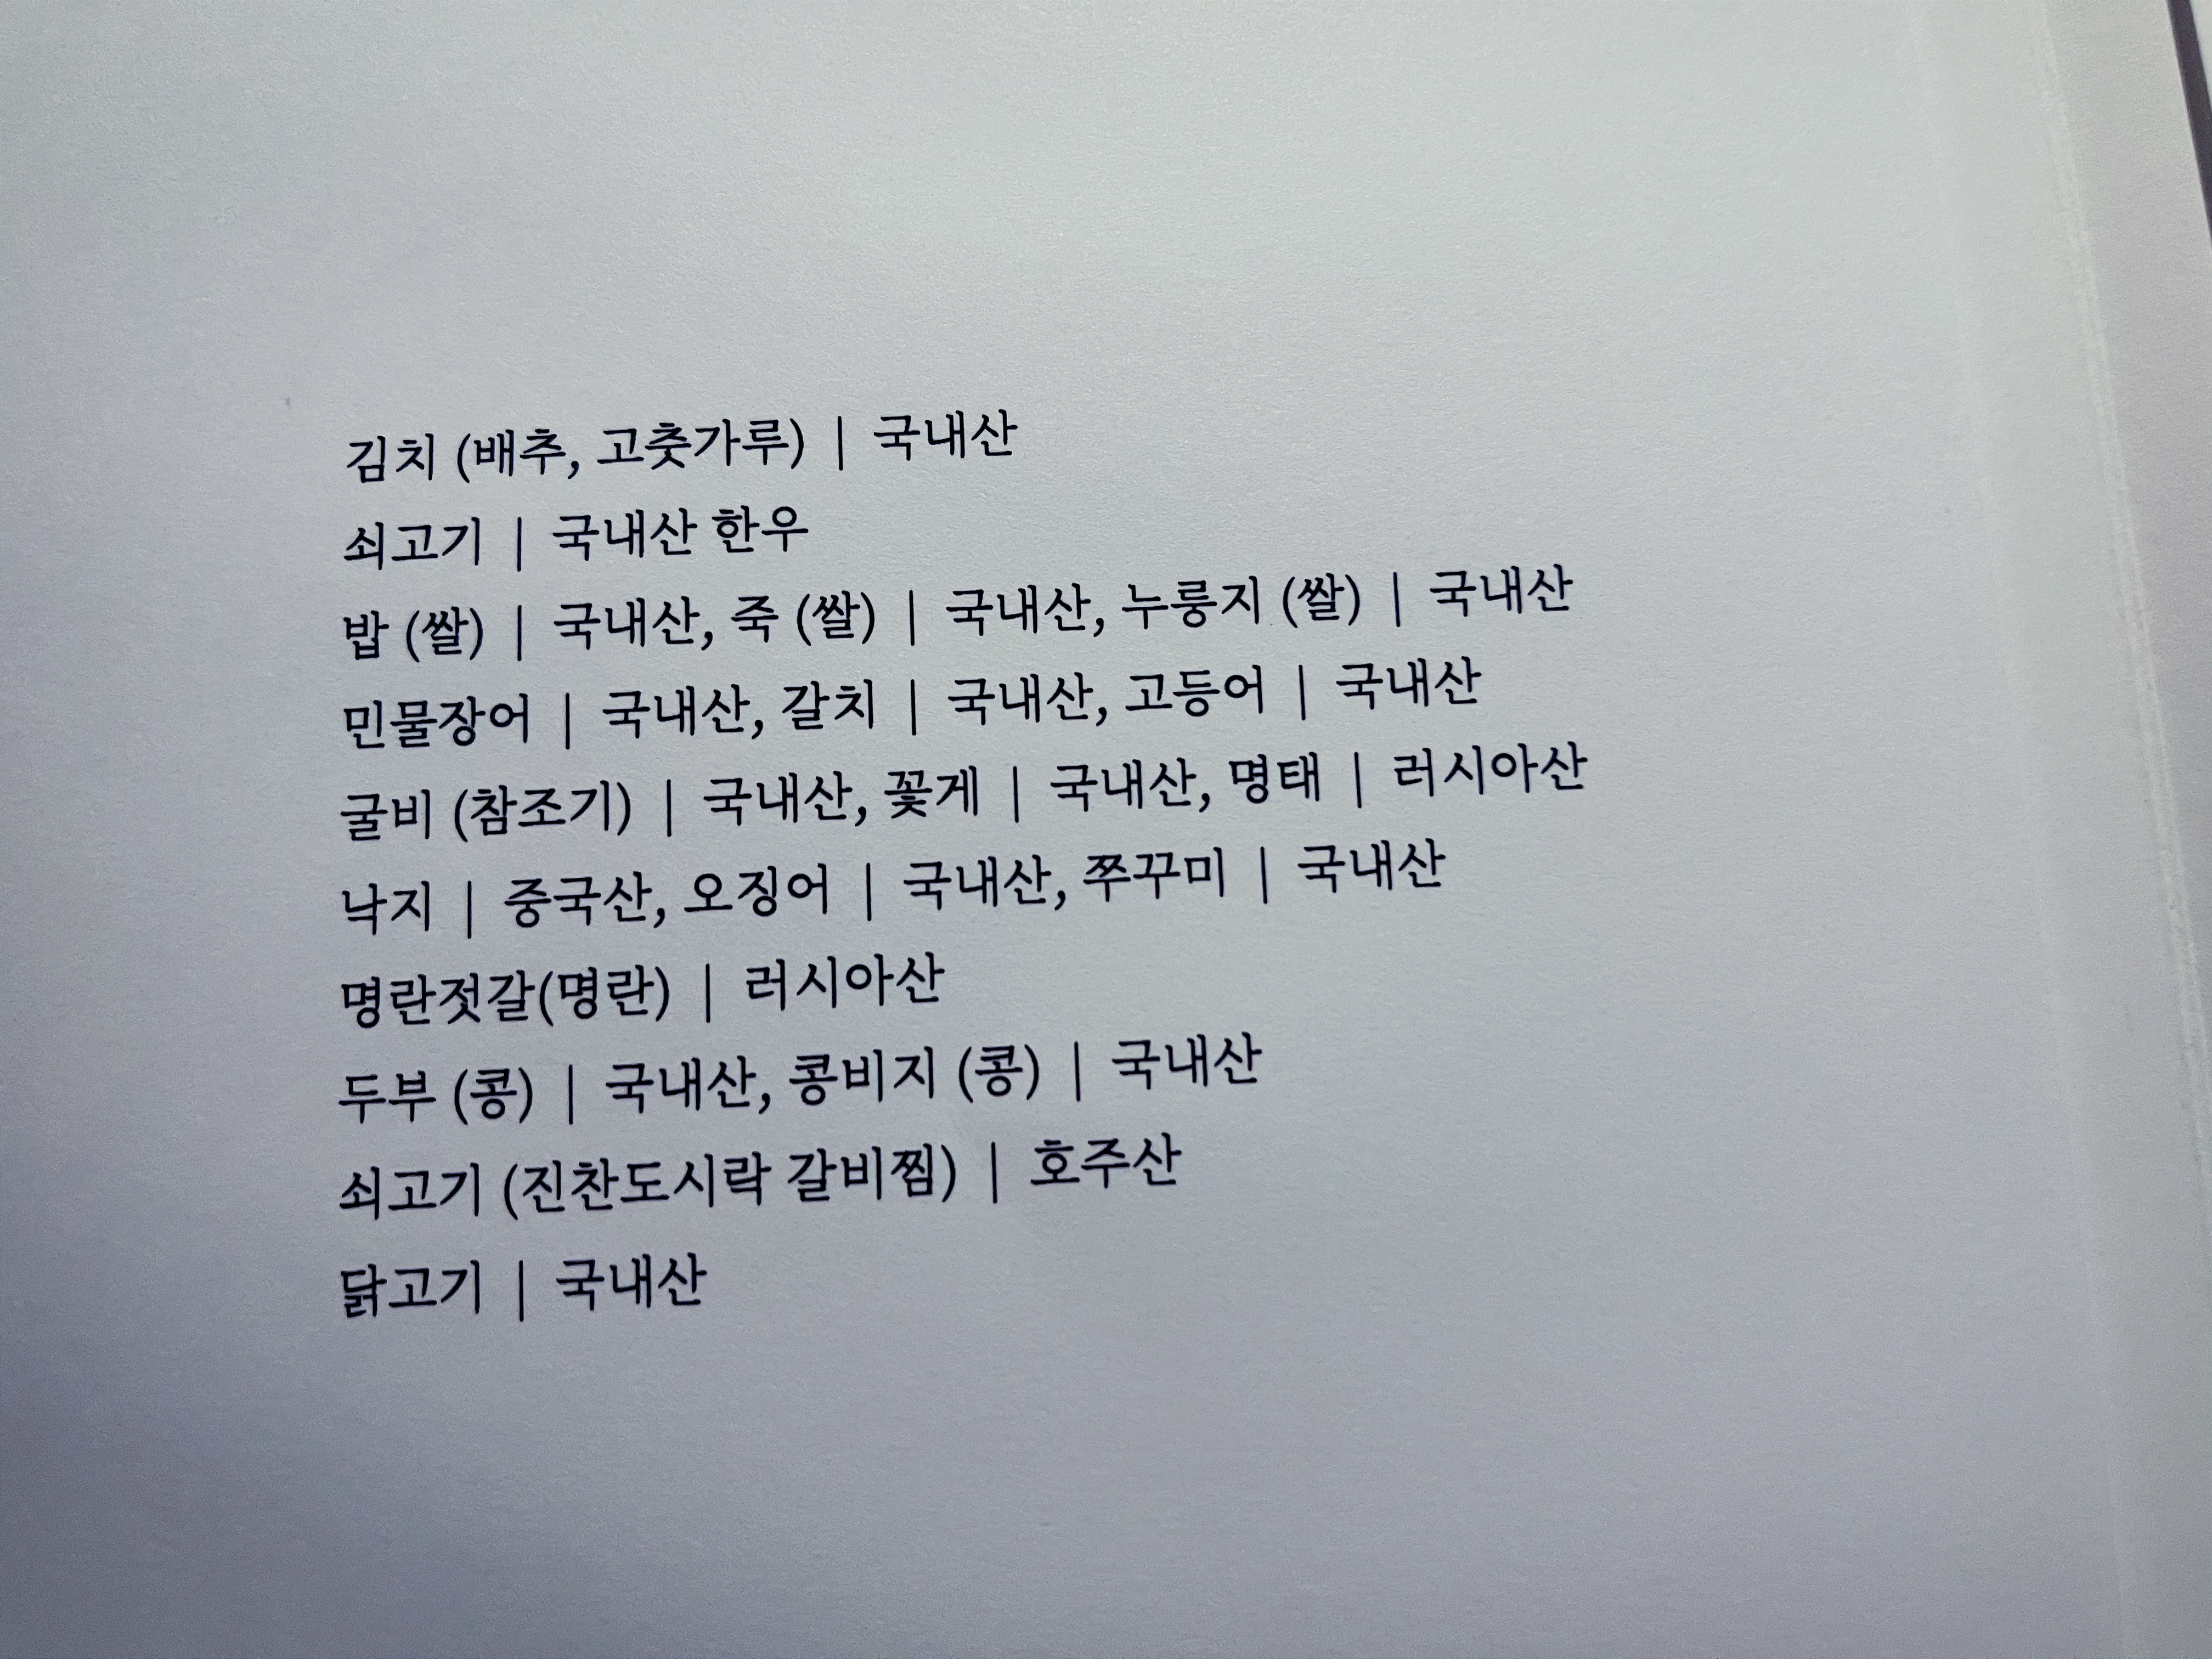 김치 (배추, 고춧가루) | 국내산
쇠고기 | 국내산 한우
밥 (쌀) | 국내산, 죽 (쌀) | 국내산, 누룽지 (쌀) | 국내산
민물장어 | 국내산, 갈치 | 국내산, 고등어 | 국내산
굴비 (참조기) | 국내산, 꽃게 | 국내산, 명태 | 러시아산
낙지 | 중국산, 오징어 | 국내산, 쭈꾸미 | 국내산
명란젓갈(명란) | 러시아산
두부 (콩) | 국내산, 콩비지 (콩) | 국내산
쇠고기 (진찬도시락 갈비찜) | 호주산
닭고기 | 국내산